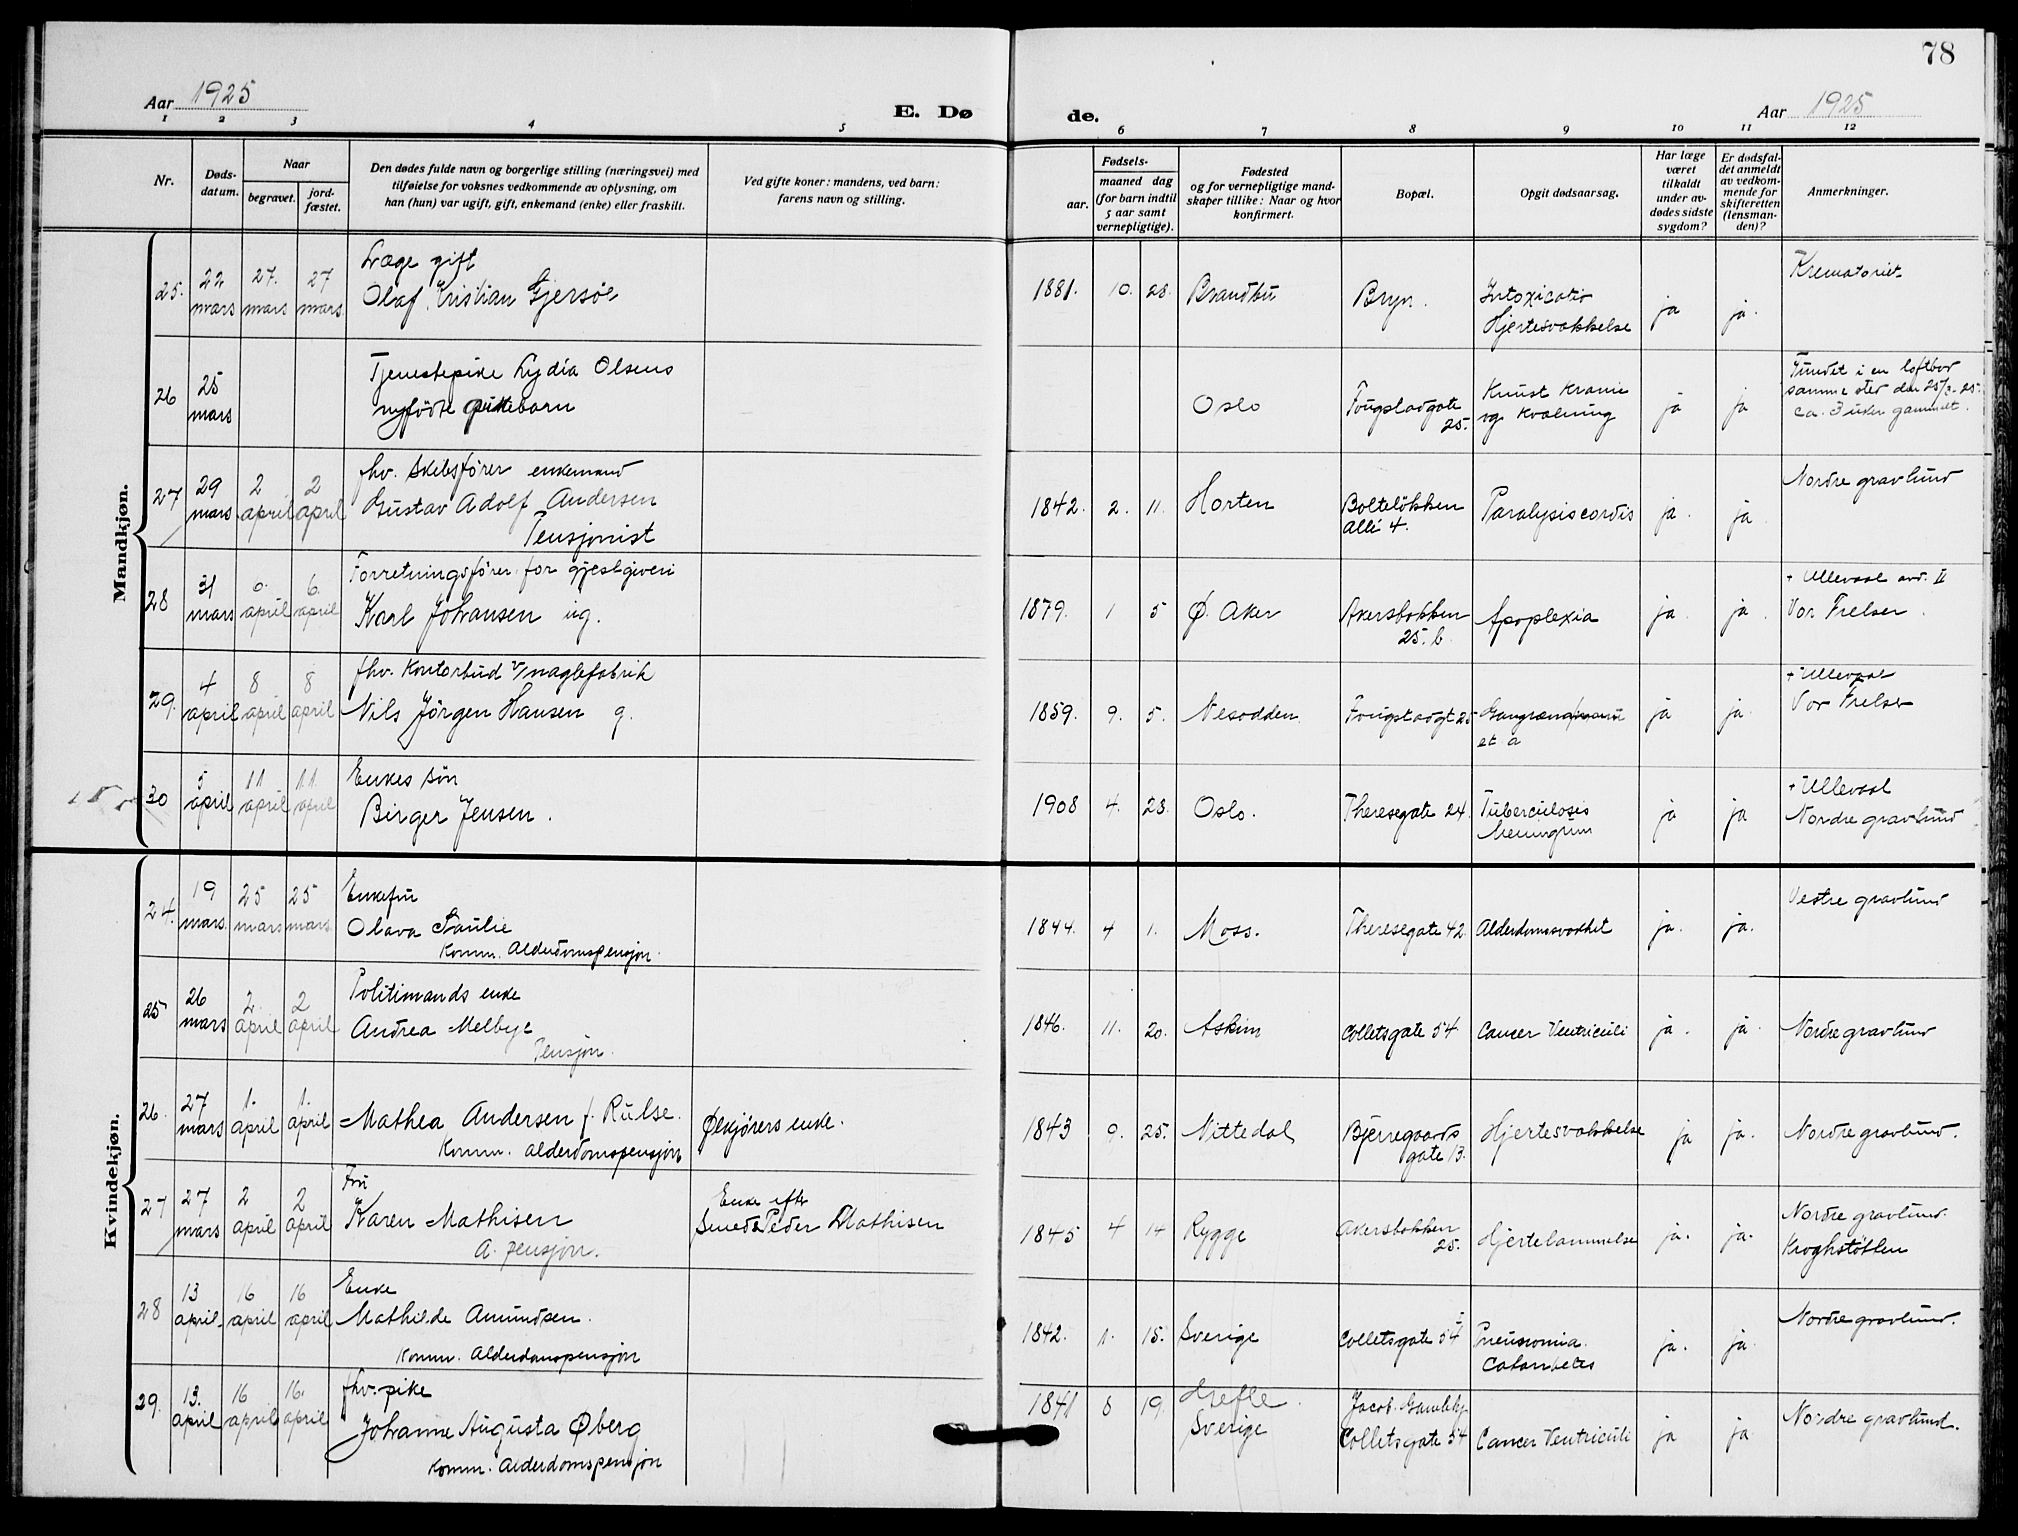 78
Aar 1925
E. Dø de.
Aar 1925
1 2 3 4 5 6 7 8 9 10 11 12
Nr.
Døds-
datum.
Naar
begravet.
jord-
fæstet.
Den dødes fulde navn og borgerlige stilling (næringsvei) med
tilføielse for voksnes vedkommende av oplysning, om
han (hun) var ugift, gift, enkemand (enke) eller fraskilt.
Ved gifte koner: mandens, ved barn:
farens navn og stilling.
Fødsels-
aar.
maaned dag
(for barn indtil
5 aar samt
vernepligtige).
Fødested
og for vernepligtige mand-
skaper tillike: Naar og hvor
konfirmert.
Bopæl.
Opgit dødsaarsag.
Har læge
været
tilkaldt
under av-
dødes sidste
sygdom?
Er dødsfal-
det anmeldt
av vedkom-
mende for
skifteretten
(lensman-
den)?
Anmerkninger.
Mandkjøn.
25. 22 mars 27. mars 27 mars
Læge gift
Olaf Kristian Gjersøe
1881. 10. 28. Brandbu Bryn.
Intoxicatio
Hjertesvakkelse
ja ja.
Krematoriet
26 25 mars
Tjenestepike Lydia Olsens
nyfødte pikebarn
Oslo
Fougstadgate
25.
Knust kranie
og kvælning
ja ja
Fundet i en loftbod
samme sted den 25/3-25.
ca. 3 uker gammelt.
27 29 mars 2 april 2 april
fhv. skibsfører enkemand
Gustav Adolf Andersen
Pensjonist
1842. 2. 11. Horten
Bolteløkken
allé 4.
Paralysis cordis
ja. ja.
Nordre gravlund
28 31 mars 6. april 6. april
Forretningsfører for gjestgiveri
Karl Johansen ug.
1879. 1 5 Ø. Aker
Akersbakken
25. b.
Apoplexia
ja. ja.
+ Ullevaal avd. II
Vor Frelser.
29. 4 april 8 april 8 april
fhv. kontorbud v/ naglefabrik
Nils Jørgen Hansen g.
1859. 9. 5. Nesodden Fougstadgt 25
et. a
ja ja.
+ Ullevaal
Vor Frelser
30 5 april 11 april 11 april
Enkes søn
Birger Jensen.
1908 4. 23. Oslo. Theresegate 24.
Tuberculosis
ja ja
+ Ullevaal
Nordre gravlund
Kvindekjøn.
24. 19 mars. 25 mars 25 mars.
Enkefru
Olava Paulie
Komm. Alderdomspensjon.
1844. 4 1. Moss. Theresegate 42. Alderdomssvakhet ja. ja.
Vestre gravlund
25 26 mars 2. april 2 april
Politimands enke
Andrea Melbye
Pensjon.
1846. 11. 20. Askim Colletsgate 54. Cancer Ventriculi ja. ja. Nordre gravlund
26. 27 mars 1. april 1. april
Mathea Andersen f. Rulse.
Komm. alderdomspensjon
Ølkjørers enke.
1843 9. 25. Nittedal
Bjerregaards
gate 13.
Hjertesvakkelse ja ja. Nordre gravlund.
27 27 mars 2 april 2 april
Fru
Karen Mathisen
A. pensjon.
Enke efter
Smed Peder Mathisen
1845 4 14 Rygge
Akersbakken
25.
Hjertelammelse ja. ja.
Nordre gravlund.
Kroghstøtten
28 13 april. 16 april 16 april
Enke
Mathilde Amundsen.
Komm. Alderdomspensjon
1842. 1. 15. Sverige Colletsgate 54
Pneumonia
ja. ja.
Nordre gravlund.
29. 13. april 16 april 16. april
fhv. pike
Johanne Augusta Øberg
Komm. Alderdomspensjon
1841 8 19.
Gefle.
Sverige
Jacob
Colletsgate 54
Cancer Ventriculi
ja ja
Nordre gravlund.